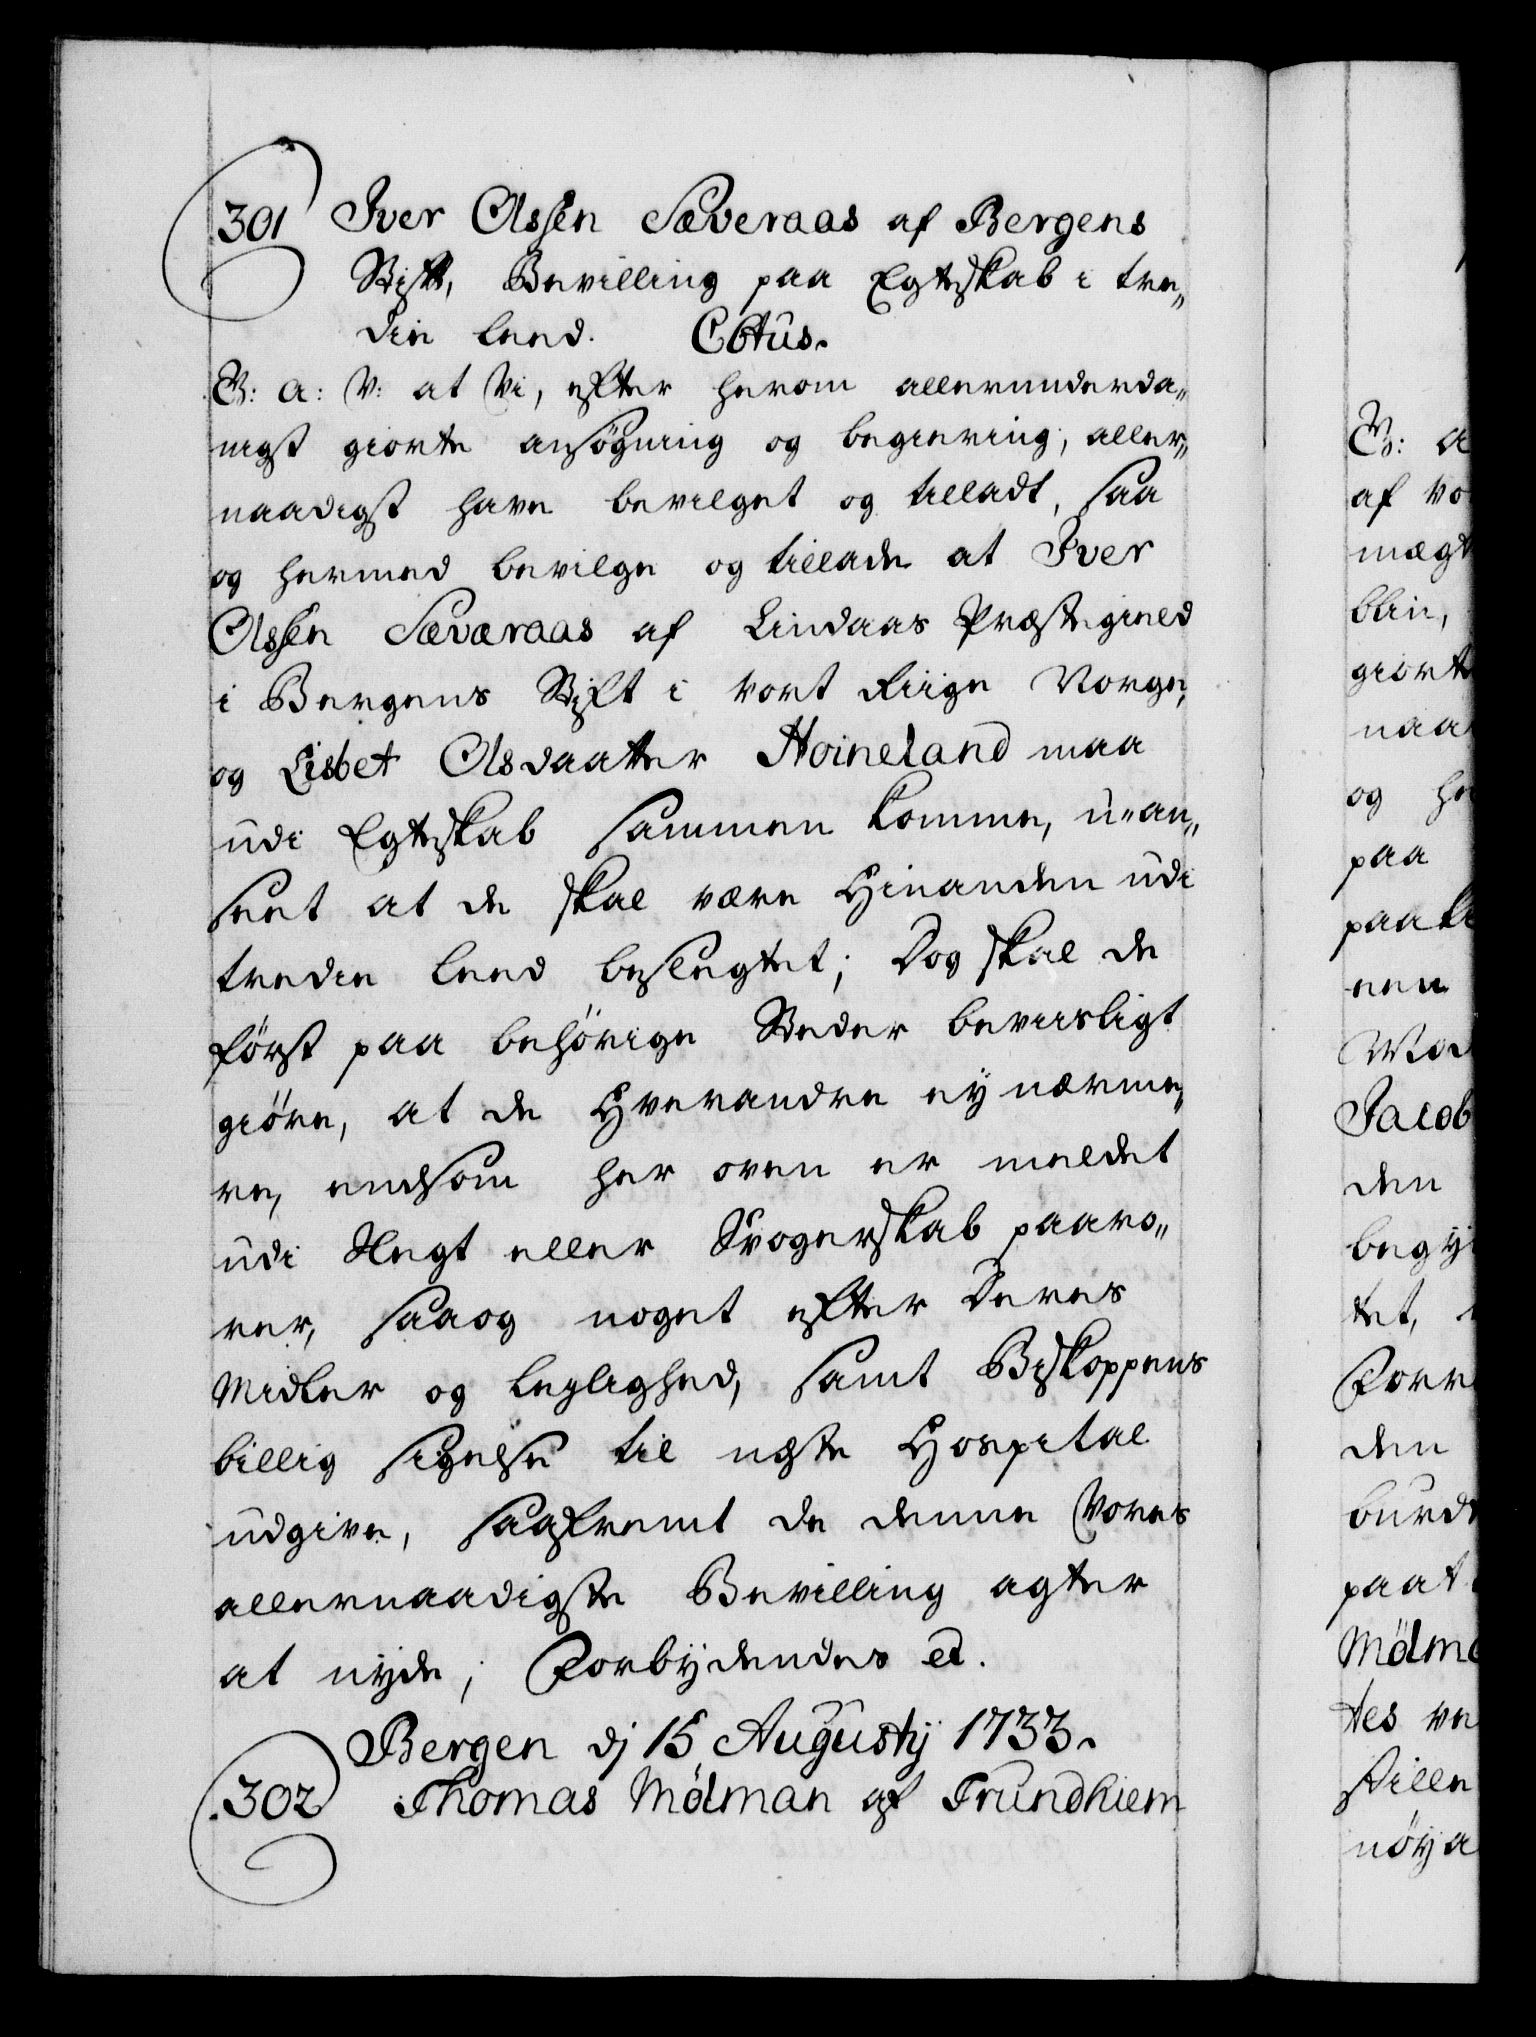 301 Iver Olssen Sæveraas af Bergens
Stift, Bevilling paa Egteskab i tre„
die leed. Cbtus.
G: A: V: at Vi, efter herom allerunderda„
nigst giorte ansögning og begiering, aller„
naadigst have bevilget og tilladt, saa
og hermed bevilge og tillade at Iver
Olssen Sæværaas af Lindaas Præstegield
i Bergens Stift i vort Riige Norge,
og Lisbet Olsdaatter Hoineland maa
udi Egteskab sammen komme, u-an„
seet at de skal være Hinanden udi
tredie leed beslegtet; Dog skal de
först paa behörige Steder beviisligt
giöre, at de Hverandre ey nærme„
re, end som her oven er meldet
udi Slegt eller Svogerskab paaro„
rer, saa og noget efter Deres
Midler og leylighed, samt Biskoppens
billig sigelse til neste Hospital
udgive, saafremt de denne Vores
allernaadigste Bevilling agter
at nyde; Forbydendes et.
Bergen dj 15 Augustij 1733.
302 Thomas Mölman af Trundhiem
G: A
af vo
mægt
blin,
giort
naa
og he
paa
paa
een
Jacob
den
begy
tet,
Forr
den
burd
paa
Mölm
tes ve
nöy a